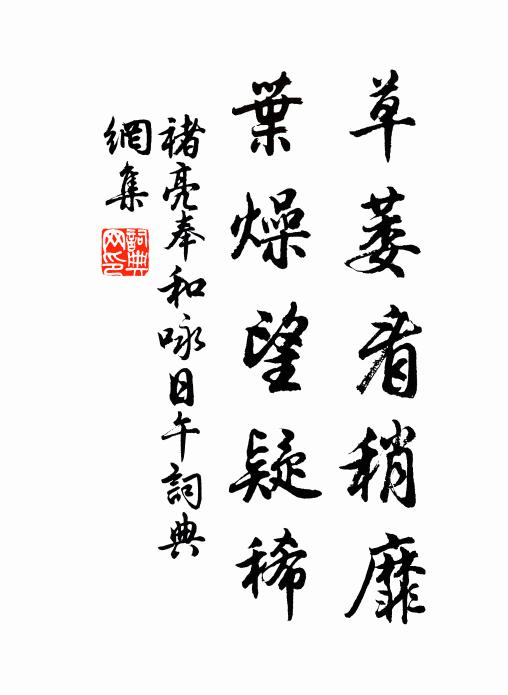 草萎看稍靡
葉燥望疑稀
褚亮奉和咏日午詞典
網集
詞典網印